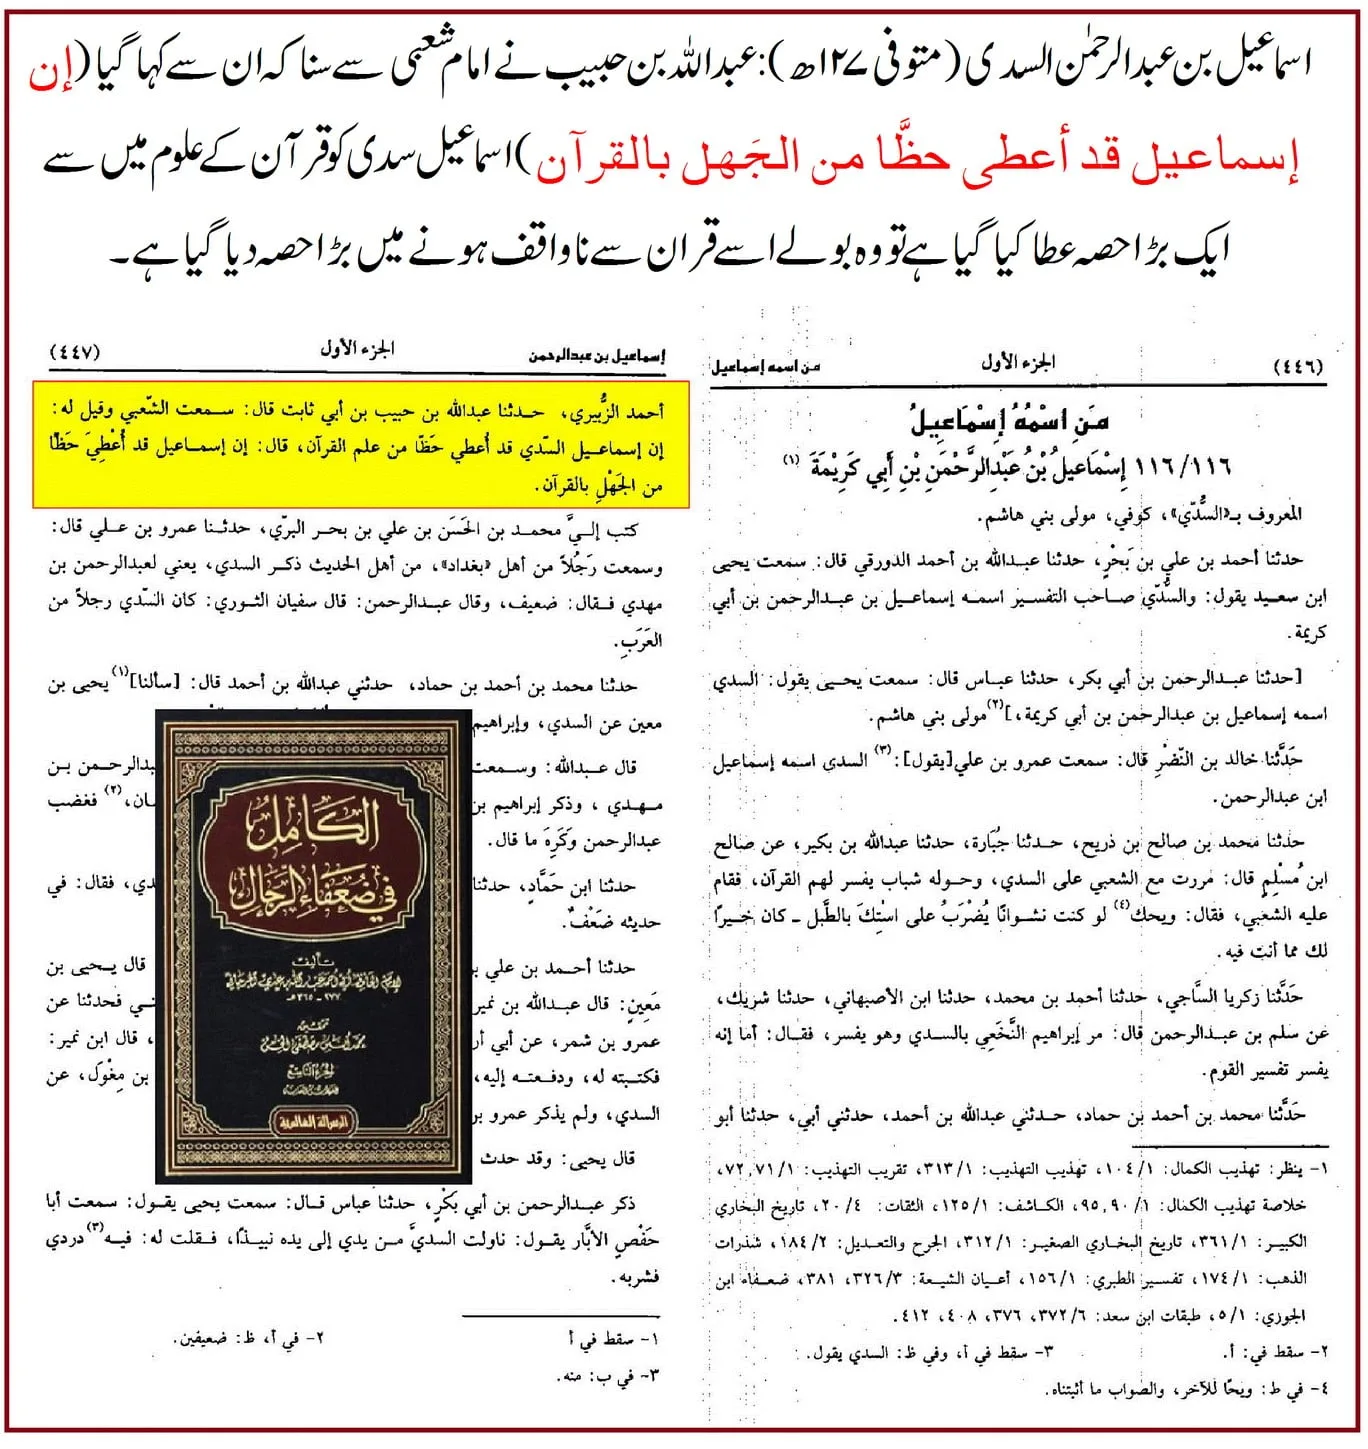 اسماعیل بن عبدالرحمٰن السدی (متوفی ۱۲۷ھ): عبداللہ بن حبیب نے امام شعبی سے سنا کہ ان سے کہا گیا (إن
إسماعيل قد أعطى حظَّا من الجَهل بالقرآن) اسماعیل سدی کو قرآن کے علوم میں سے
ایک بڑا حصہ عطا کیا گیا ہے تو وہ بولے اسے قران سے ناواقف ہونے میں بڑا حصہ دیا گیا ہے۔
(٤٤٦) الجزء الأول من اسمه إسماعيل
مَنِ اسْمُهُ إِسْمَاعِيلُ
١١٦/١١٦ إِسْمَاعِيلُ بْنُ عَبْدِالرَّحْمَنِ بْنِ أَبِي كَرِيْمَةَ (١)
المعروف بـ«السُّدّي»، كوفي، مولى بني هاشم.
حدثنا أحمد بن علي بن بَحْرٍ، حدثنا عبدالله بن أحمد الدورقي قال: سمعت يحيى
ابن سعيد يقول: والسُّدّي صاحب التفسير اسمه إسماعيل بن عبدالرحمن بن أبي
كريمة.
[حدثنا عبدالرحمن بن أبي بكر، حدثنا عباس قال: سمعت يحيى يقول: السدي
اسمه إسماعيل بن عبدالرحمن بن أبي كريمة،](٢) مولى بني هاشم.
حَدَّثنا خالد بن النَّضْرِ قال: سمعت عمرو بن علي [يقول]:(٣) السدي اسمه إسماعيل
ابن عبدالرحمن.
حدثنا محمد بن صالح بن ذريح، حدثنا جُبَارة، حدثنا عبدالله بن بكير، عن صالح
ابن مُسْلِمٍ قال: مررت مع الشعبي على السدي، وحوله شباب يفسر لهم القرآن، فقام
عليه الشعبي، فقال: ويحك(٤) لو كنت نشوانًا يُضْرَبُ على اسْتِكَ بالطَّبل ـ كان خيرًا
لك مما أنت فيه.
حَدَّثنا زكريا السَّاجي، حدثنا أحمد بن محمد، حدثنا ابن الأصبهاني، حدثنا شريك،
عن سلم بن عبدالرحمن قال: مر إبراهيم النَّخَعي بالسدي وهو يفسر، فقال: أما إنه
يفسر تفسير القوم.
حَدَّثنا محمد بن أحمد بن حماد، حدثني عبدالله بن أحمد، حدثني أبي، حدثنا أبو
١- ينظر: تهذيب الكمال: ١٠٤/١، تهذيب التهذيب: ٣١٣/١، تقريب التهذيب: ٧٢,٧١/١،
خلاصة تهذيب الكمال: ٩٥,٩٠/١، الكاشف: ١٢٥/١، الثقات: ٢٠/٤، تاريخ البخاري
الكبير: ٣٦١/١، تاريخ البخاري الصغير: ٣١٢/١، الجرح والتعديل: ١٨٤/٢، شذرات
الذهب: ١٧٤/١، تفسير الطبري: ١٥٦/١، أعيان الشيعة: ٣٢٦/٣، ٣٨١، ضعفاء ابن
الجوزي: ٥/١، طبقات ابن سعد: ٣٧٢/٦، ٣٧٦، ٤٠٨، ٤١٢.
٢- سقط في: أ. ٣- سقط في أ، وفي ظ: السدي يقول.
٤- في ط: ويحًا للآخر، والصواب ما أثبتناه.
إسماعيل بن عبدالرحمن الجزء الأول (٤٤٧)
أحمد الزُّبيري، حدثنا عبدالله بن حبيب بن أبي ثابت قال: سمعت الشّعبي وقيل له:
إن إسماعيل السّدي قد أُعطي حَظًا من علم القرآن، قال: إن إسماعيل قد أُعْطِيَ حَظًا
من الجَهْلِ بالقرآن.
كتب إليَّ محمد بن الحَسَن بن علي بن بحر البرّي، حدثنا عمرو بن علي قال:
وسمعت رَجُلاً من أهل «بغداد»، من أهل الحديث ذكر السدي، يعني لعبدالرحمن بن
مهدي فقال: ضعيف، وقال عبدالرحمن: قال سفيان الثوري: كان السّدي رجلاً من
العَرَبِ.
حدثنا محمد بن أحمد بن حماد، حدثني عبدالله بن أحمد قال: [سألنا](١) يحيى بن
معين عن السدي، وإبراهيم
قال عبدالله: وسمعت بدالرحمن بن
مهدي، وذكر إبراهيم بن ان،(٢) فغضب
عبدالرحمن وَكَرِهَ ما قال.
حدثنا ابن حَمَّادٍ، حدثنا دي، فقال: في
حديثه ضَعْفٌ.
حدثنا أحمد بن علي ب قال يحيى بن
مَعِينٍ: قال عبدالله بن نمير ني فحدثنا عن
عمرو بن شمر، عن أبي أر ، قال ابن نمير:
فكتبته له، ودفعته إليه، بن مِغْوَل، عن
السدي، ولم يذكر عمرو بن
قال يحيى: وقد حدث
ذكر عبدالرحمن بن أبي بكْرٍ، حدثنا عباس قال: سمعت يحيى يقول: سمعت أبا
حَفْصٍ الأبَّار يقول: ناولت السديَّ من يدي إلى يده نبيذًا، فقلت له: فيه(٣) دردي
فشربه.
١- سقط في أ ٢- في أ، ظ: ضعيفين.
٣- في ب: منه.
الكامل
في ضعفاء الرجال
تأليف
٢٧٧ - ٣٦٥ هـ
تحقيق
الرسالة العالمية